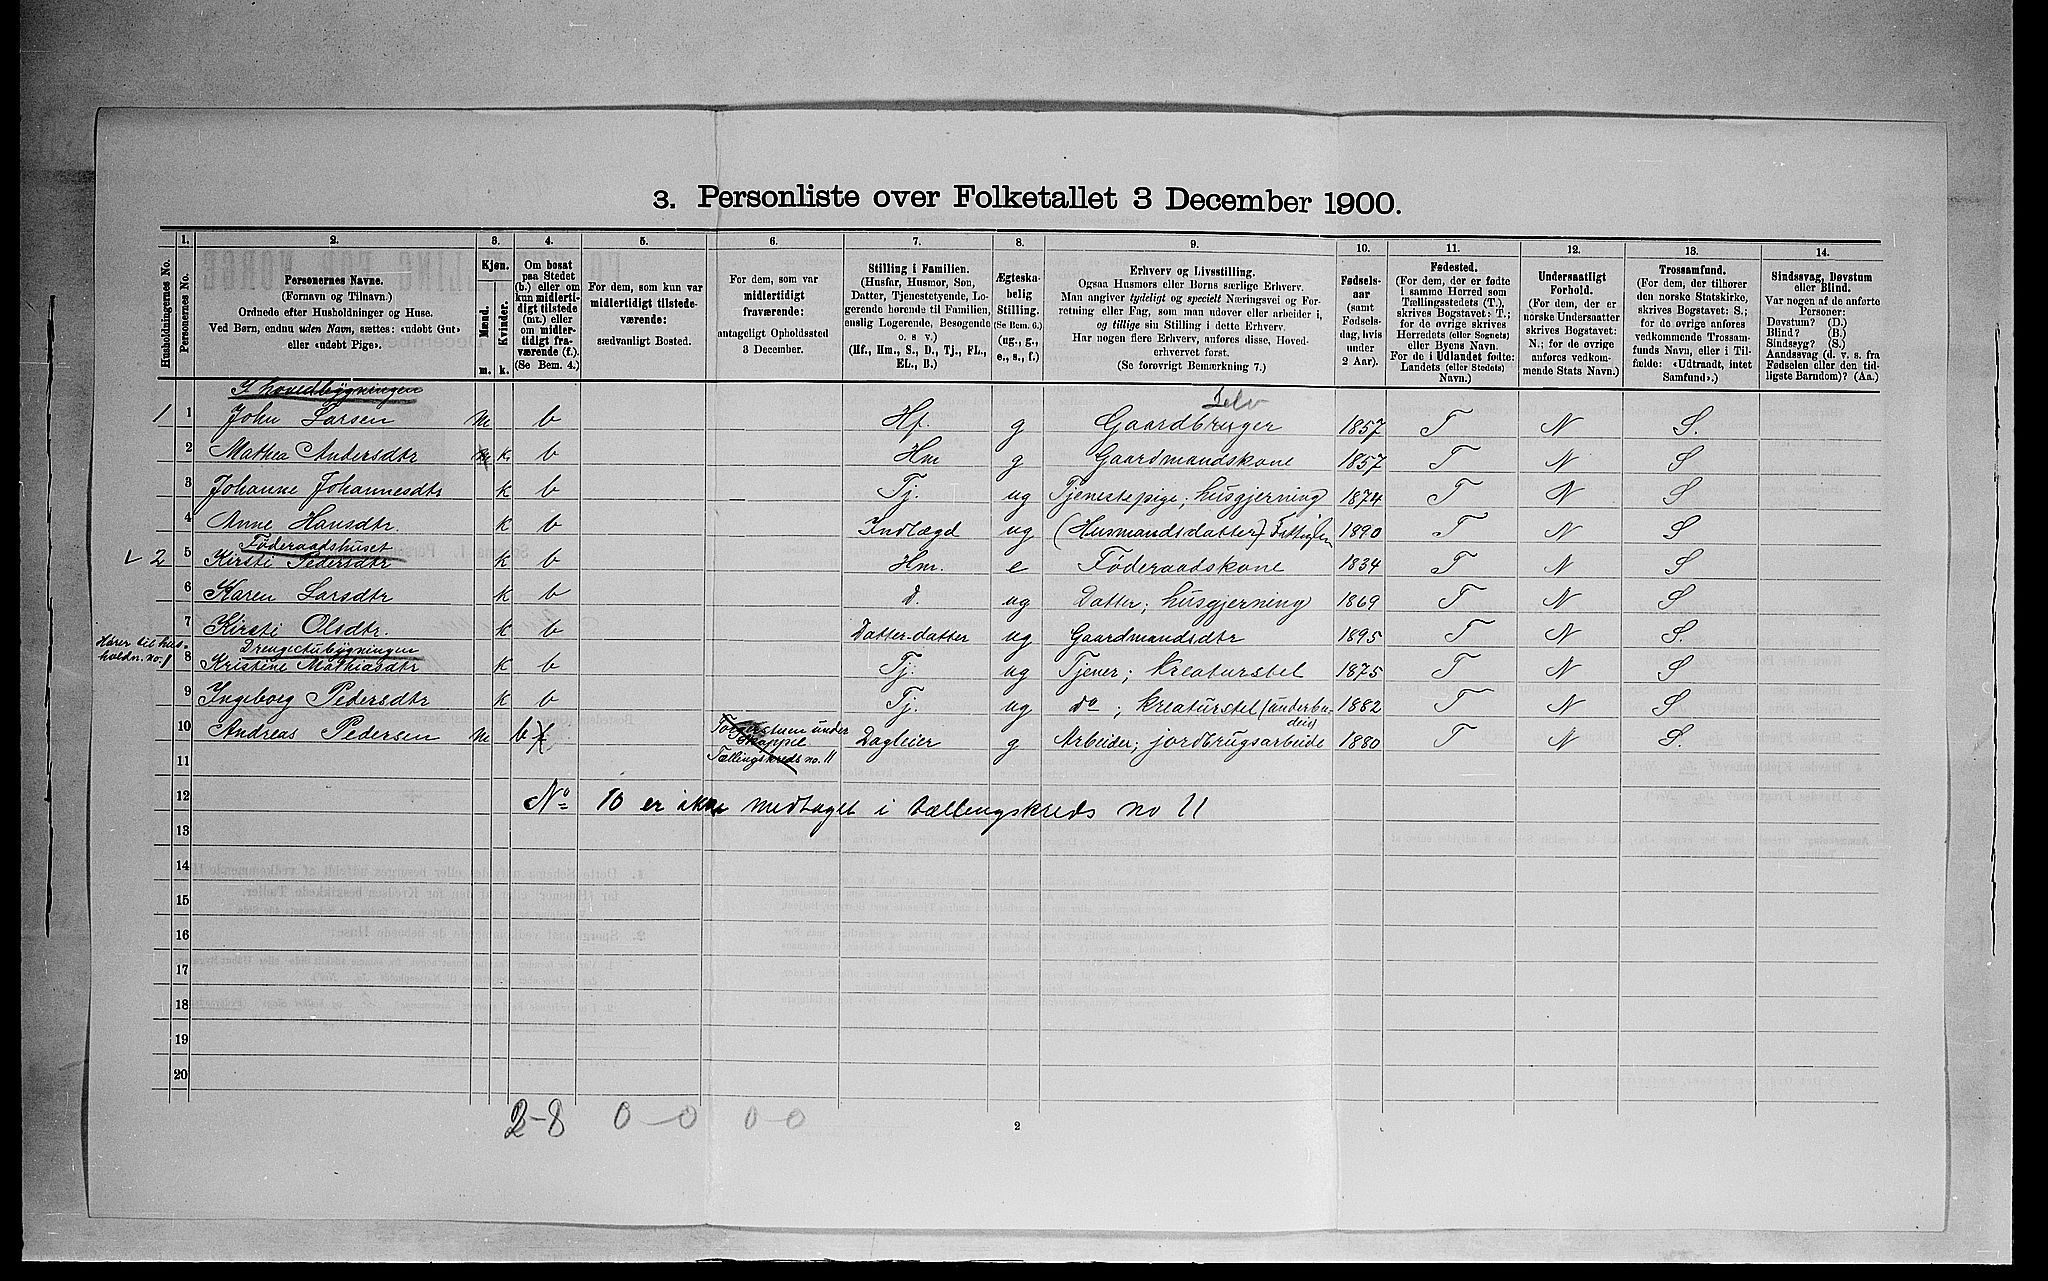 3. Personliste over Folketallet 3 December 1900.
Husholdningernes No.
1.
Personernes No.
2.
Personernes Navne.
(Fornavn og Tilnavn.)
Ordnede efter Husholdninger og Huse.
Ved Børn, endnu uden Navn, sættes: «udøbt Gut»
eller «udøbt Pige».
3.
Kjøn.
Mænd.
Kvinder.
m.
k.
4.
Om bosat
paa Stedet
(b.) eller om
kun midlerti-
digt tilstede
(mt.) eller
om midler-
tidigt fra-
værende (f.).
(Se Bem. 4.)
5.
For dem, som kun var
midlertidigt tilstede-
værende:
sædvanligt Bosted.
6.
For dem, som var
midlertidigt
fraværende:
antageligt Opholdssted
3 December.
7.
Stilling i Familien.
(Husfar, Husmor, Søn,
Datter, Tjenestetyende, Lo-
gerende hørende til Familien,
enslig Logerende, Besøgende
o. s v.)
(Hf., Hm., S., D., Tj., FL.,
EL., B.)
8.
Ægteska-
belig
Stilling.
(Se Bem. 6.)
(ug., g.,
e., s., f.)
9.
Erhverv og Livsstilling.
Ogsaa Husmors eller Børns særlige Erhverv.
Man angiver tydeligt og specielt Næringsvei og For-
retning eller Fag, som man udøver eller arbeider i,
og tillige sin Stilling i dette Erhverv.
Har nogen flere Erhverv, anføres disse, Hoved-
erhvervet først.
(Se forøvrigt Bemærkning 7.)
10.
Fødsels-
aar
(samt
Fødsels-
dag, hvis
under
2 Aar).
11.
Fødested.
(For dem, der er fødte
i samme Herred som
Tællingsstedets (T.),
skrives Bogstavet: T.;
for de øvrige skrives
Herredets (eller Sognets)
eller Byens Navn.
For de i Udlandet fødte:
Landets (eller Stedets)
Navn.)
12.
Undersaatligt
Forhold.
(For dem, der er
norske Undersaatter
skrives Bogstavet:
N.; for de øvrige
anføres vedkom-
mende Stats Navn.)
13.
Trossamfund.
(For dem, der tilhører
den norske Statskirke,
skrives Bogstavet: S.;
for de øvrige anføres
vedkommende Trossam-
funds Navn, eller i Til-
fælde: «Udtraadt, intet
Samfund».)
14.
Sindssvag, Døvstum
eller Blind.
Var nogen af de anførte
Personer:
Døvstum? (D.)
Blind? (B.)
Sindssyg? (S.)
Aandssvag (d. v. s. fra
Fødselen eller den tid-
ligste Barndom)? (Aa.)
I hovedbygningen
Selv
1 1 John Larsen m b Hf. g Gaardbruger 1857 T N S.
2 Mathea Andersdtr m k. b Hm g Gaardmandskone 1857 T N S
3 Johanne Johannesdtr k b Tj. ug Tjenestepige; husgjerning 1874 T N S
4 Anne Hansdtr. k b Indlægd ug (Husmandsdatter) Fattiglem 1890 T N S
Føderaadshuset
2 5 Kirsti Pedersdtr k b Hm. e Føderaadskone 1834 T N S
6 Karen Larsdtr k b D. ug Datter; husgjerning 1869 T N S
7 Kirsti Olsdtr. k b Datter-datter ug Gaardmandsdtr 1895 T N S.
Hører til hus-
holdn. no. 1
Drengestubygningen
8 Kristine Mathiasdtr k b Tj. ug Tjener; kreaturstel 1875 T N S
9 Ingeborg Pedersdtr k b Tj. ug do; kreaturstel (underbu-
deie) 1882 T N S
10 Andreas Pedersen m b f under
Tællingskreds no. 11 Dagleier g Arbeider; jordbrugsarbeide 1880 T N S.
11
12 No 10 er ikke medtaget i tællingskreds no 11
13
14
15
16
17
18
19
20
2-8 0-0 0-0
2